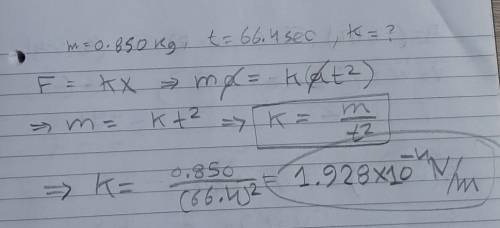 m=0.850 kg, t=66.4 sec, K=?
F = kx ⇒ ma = k(at²)
⇒ m = kt² ⇒ K = m/t²
⇒ K = 0.850/(66.4)² = 1.928×10⁻⁴ N/m